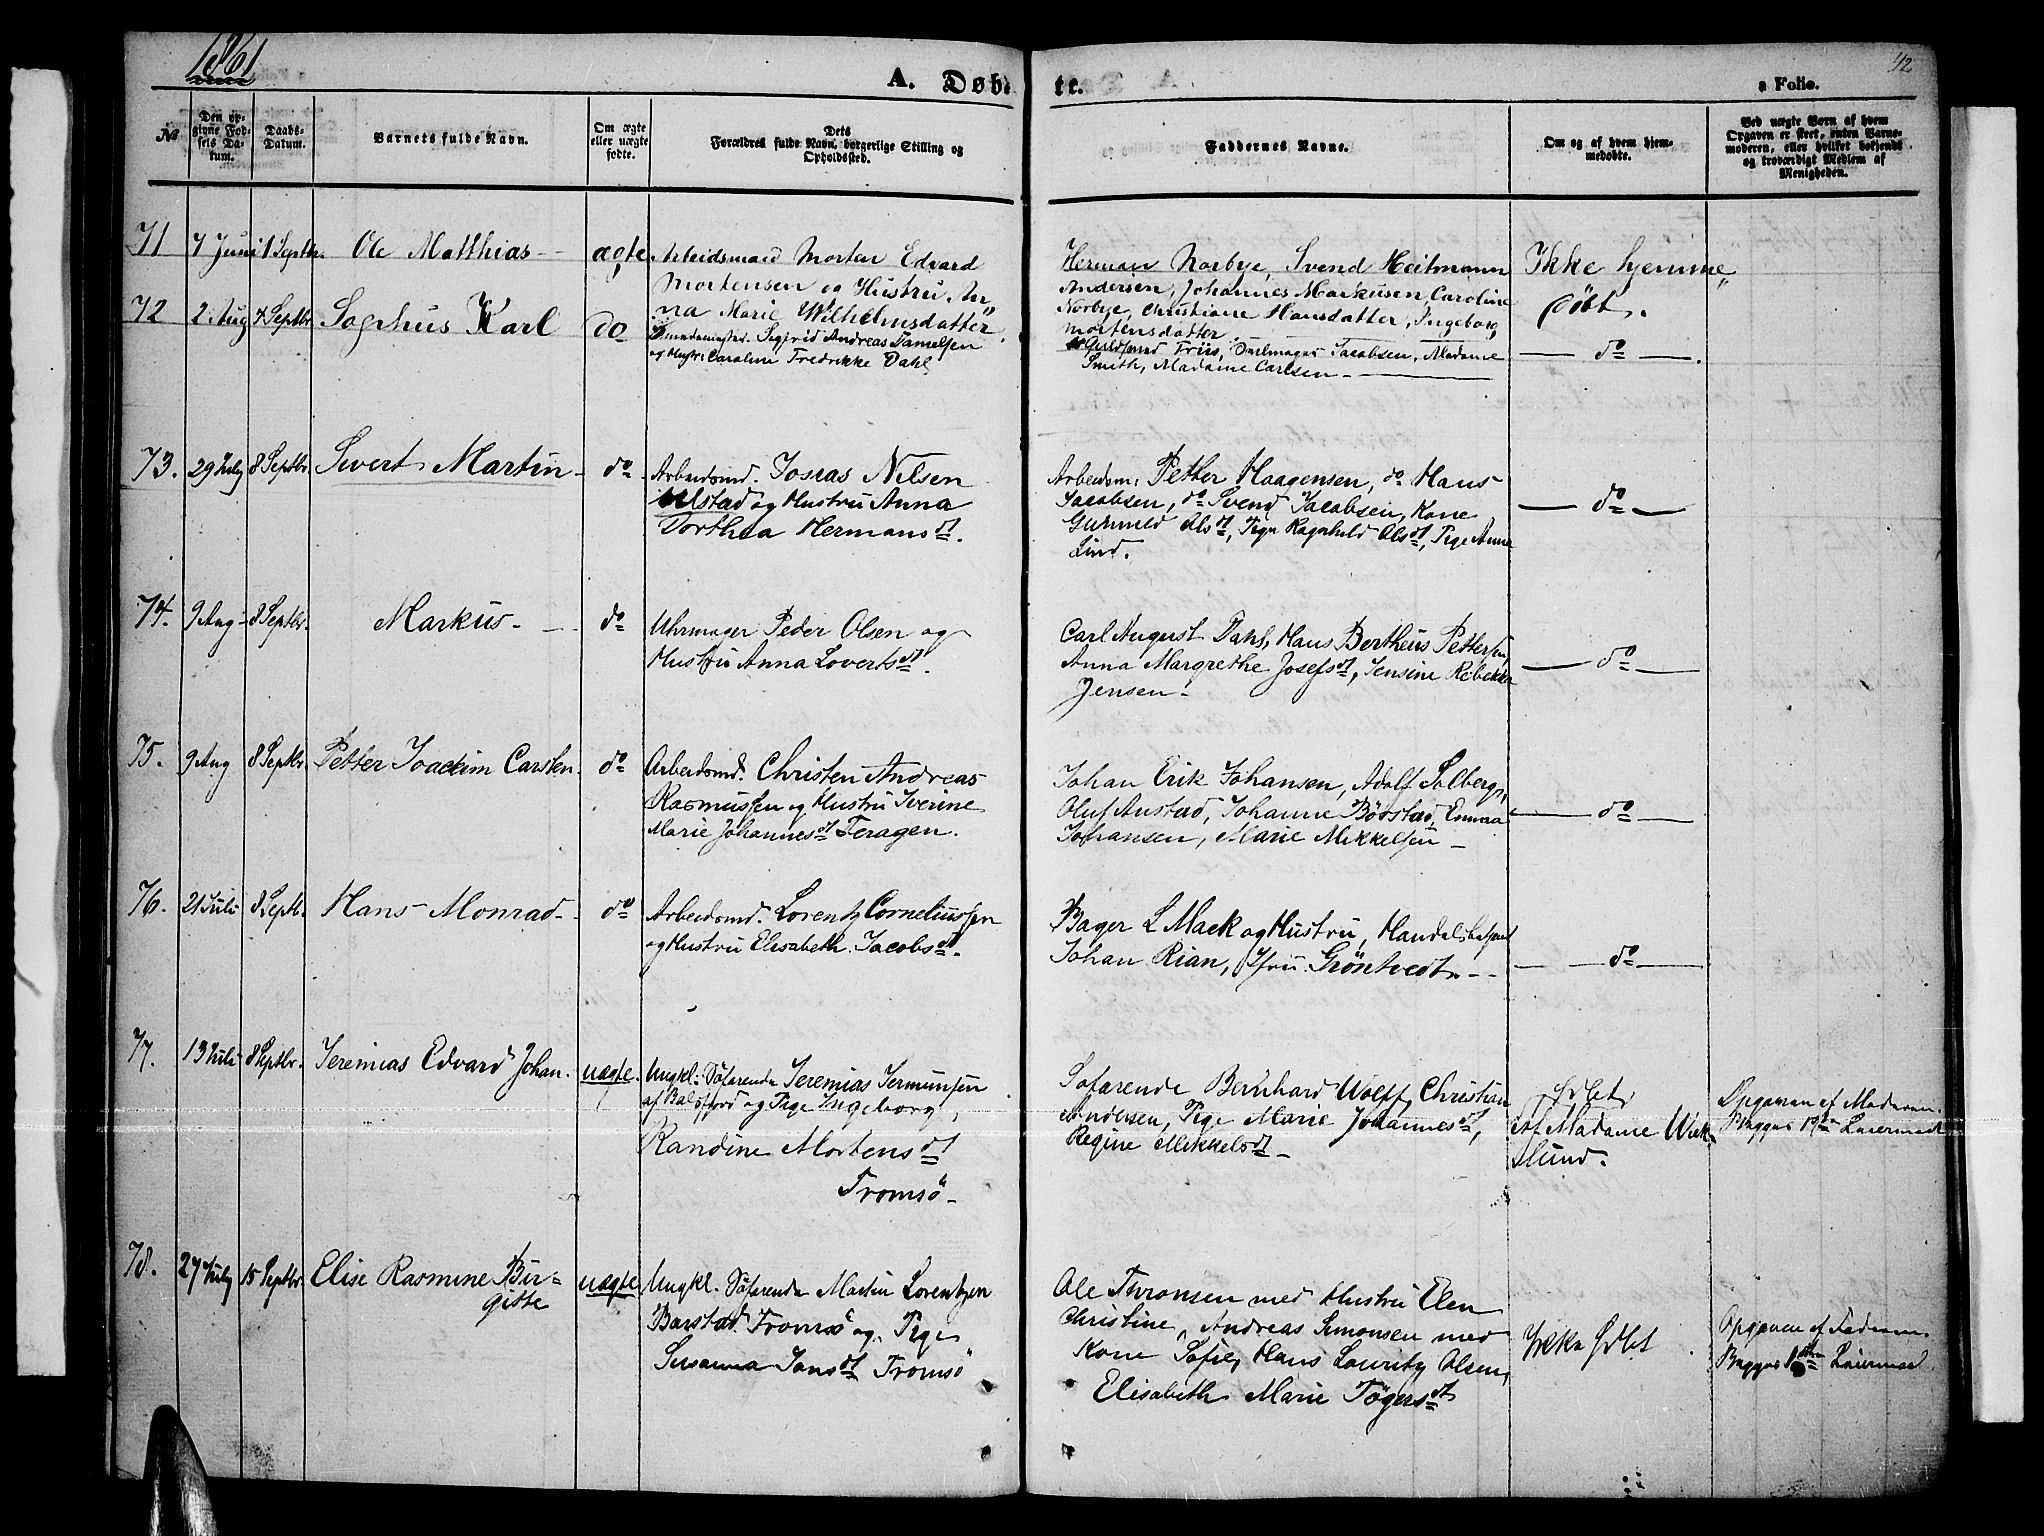 1861
A. Døbte.
42
a Folio.
No
Den opgivne Fødsels Datum.
Daabs-Datum.
Barnets fulde Navn.
Om ægte eller uægte fødte.
Dets Forældres fulde Navn, borgerlige Stilling og Opholdssted.
Faddernes Navne.
Om og af hvem hjemmedøbte.
Ved uægte Børn af hvem Opgaven er skeet, enten Barnemoderen, eller hvilket bekjendt og troværdigt Medlem af Menigheden.
71 7 Juni 1 Septbr. Ole Matthias ægte
Arbeidsmand Morten Edvard
Mortensen og Hustru An-
na Marie Wilhelmsdatter
Herman Norbye, Svend Heitmann
Andersen, Johannes Markusen, Caroline
Norbye, Christiane Hansdatter, Ingeborg
Mortensdatter
Ikke hjemme
døbt.
72 2 Aug 4 Septbr. Sophus Karl do
Sigfrid Andreas Danielsen
og Hustru Caroline Fredrikke Dahl
Friis, Jacobsen, Madame
Smith, Madame Carlsen
do
73. 29 July 8 Septbr. Sivert Martin do
Arbeidsmd. Josias Nilsen
Ulstad og Hustru Anna
Dorthea Hermansdt.
Arbeidsm: Petter Haagensen, do Hans
Jacobsen, do Svend Jacobsen, Kone
Gunnild Olsdt, Pige Ragnhild Olsdt, Pige Anna
Lind.
do
74. 9 Aug 8 Septbr. Markus do
Uhrmager Peder Olsen og
Hustru Anna Lovertsdt.
Carl August Dahl, Hans Bertheus Pettersen,
Anna Margrethe Josefsdt, Jensine Rebekka
Jensen
do
75. 9 Aug 8 Septbr. Petter Joachim Carsten. do
Arbeidsmd. Christen Andreas
Rasmussen og Hustru Iverine
Marie Johannesdt Feragen.
Johan Erik Johansen, Adolf Solberg,
Oluf Anstad, Johanne Börstad, Emma
Johansen, Marie Mikkelsen
do
76. 21 Juli 8 Septbr. Hans Monrad do
Arbeidsmd. Lorentz Corneliussen
og Hustru Elisabeth Jacobsdt.
Bager L Mack og Hustru, Handelsbetjent
Johan Rian, Jfru. Gröntvedt
do
77. 13 Juli 8 Septbr. Jeremias Edvard Johan. uægte.
Ungkl: Söfarende Jeremias Jermunsen
af Balsfjord og Pige Ingeborg
Randine Mortensdt
Tromsö
Söfarende Bernhard Wolff, Christian
Andersen, Pige Marie Johannesdt,
Regine Mikkelsdt
Af Madame Wik-
lund.
Opgaven af Moderen.
Begges 1ste Leiermaal
78. 27 July 15 Septbr. Elise Rasmine Bir-
gitte uægte
Ungkl. Söfarende Martin Lorentzen
Barstad Tromsö og Pige
Susanna Jonsdt Tromsö
Ole Thronsen med Hustru Elen
Christine, Andreas Simonsen med
Kone Sofie, Hans Lauritz Olsen,
Elisabeth Marie Tögersdt
Ikke døbt
Opgaven af Faderen.
Begges 1ste Leiermaal